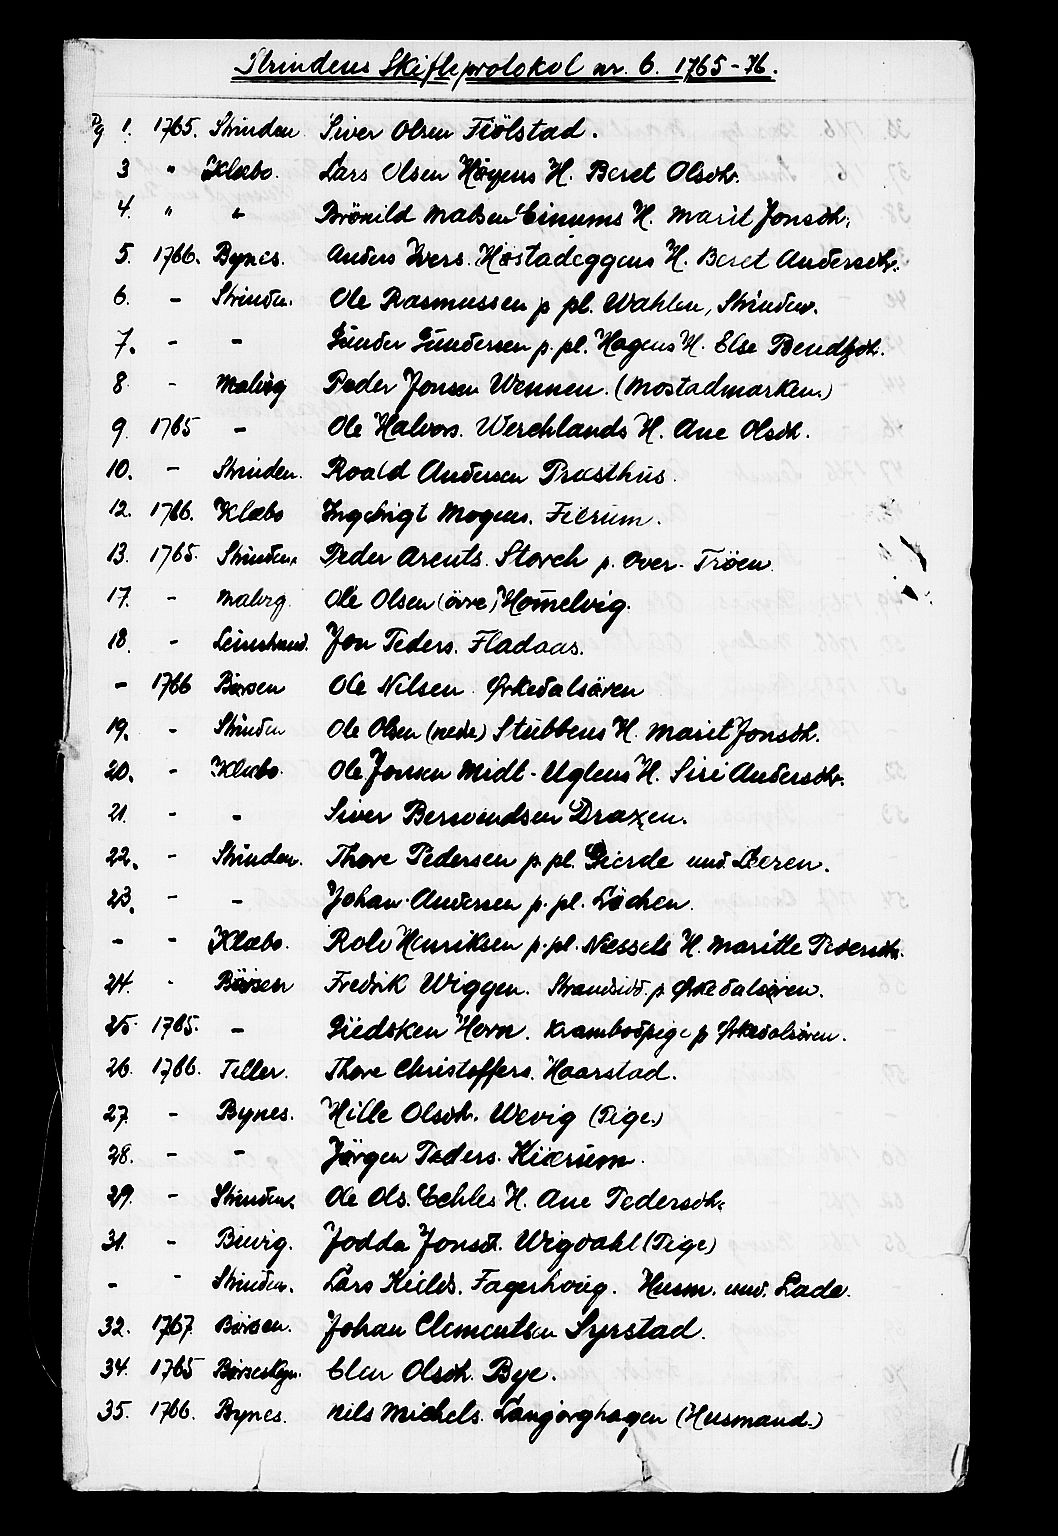 Strindens Skifteprotokol nr. 6. 1765-76.
Pg 1. 1765. Strinden Siver Olsen Fiölstad.
3 " Klæbo. Lars Olsen Høyens H. Beret Olsdtr.
4. " " Brönild Matsen Einums H. Marit Jonsdtr.
5. 1766. Bynes. Anders Ivers. Høstadeggens H. Beret Andersdtr.
6. - Strinden. Ole Rasmussen p pl. Wahlen, Strinden.
7. - - Gunder Gundersen p. pl. Hagens H. Else Bendtzdtr.
8 - Malvig Peder Jonsen Wennen. (Mostadmarken.)
9. 1765 - Ole Halvors. Werchlands H. Ane Olsdtr.
10. - Strinden. Roald Andersen Præsthus.
12. 1766. Klæbo Ingebrigt Mogens. Fierum.
13. 1765. Strinden. Peder Arents. Storch p. Over-Tröen
17. - Malvig. Ole Olsen (övre) Homelvig.
18. - Leinstrand. Jon Peders. Fladaas.
- 1766 Børsen Ole Nilsen Ørkedalsören
19. - Strinden Ole Olsen (nedre) Stubbens H. Marit Jonsdtr.
20. - Klæbo. Ole Jonsen Midt-Uglens H. Siri Andersdtr.
21. - - Siver Berendsen Draxen.
22. - Strinden. Thore Pedersen p. pl. Gierde und. Leeren.
23. - - Johan Andersen p. pl. Löchen.
- - Klæbo. Rolv Henriksen p. pl. Næssets H. Maritte Pedersdtr.
24. - Börsen Fredrik Wiggen. Strandsidd. p. Ørkedalsören.
25. 1765. - Giedsken Horn. Krambodpige p Ørkedalsören.
26. 1766. Tiller. Thore Christoffers. Haarstad.
27. - Bynes. Hille Olsdtr. Wevig (Pige.)
28. - - Jørgen Peders. Kierum.
29. - Strinden. Ole Ols. Echles H. Ane Pedersdtr.
31. - Buvig. Jodda Jonsd. Wigdahl (Pige)
- - Strinden. Lars Kields. Fagerhoug. Husm. und. Lade.
32. 1767. Børsen. Johan Clementsen Syrstad.
34. 1765 Børseskgn. Elen Olsdtr. Bye.
35. 1766. Bynes. Nils Michels. Langörghagen (Husmand.)